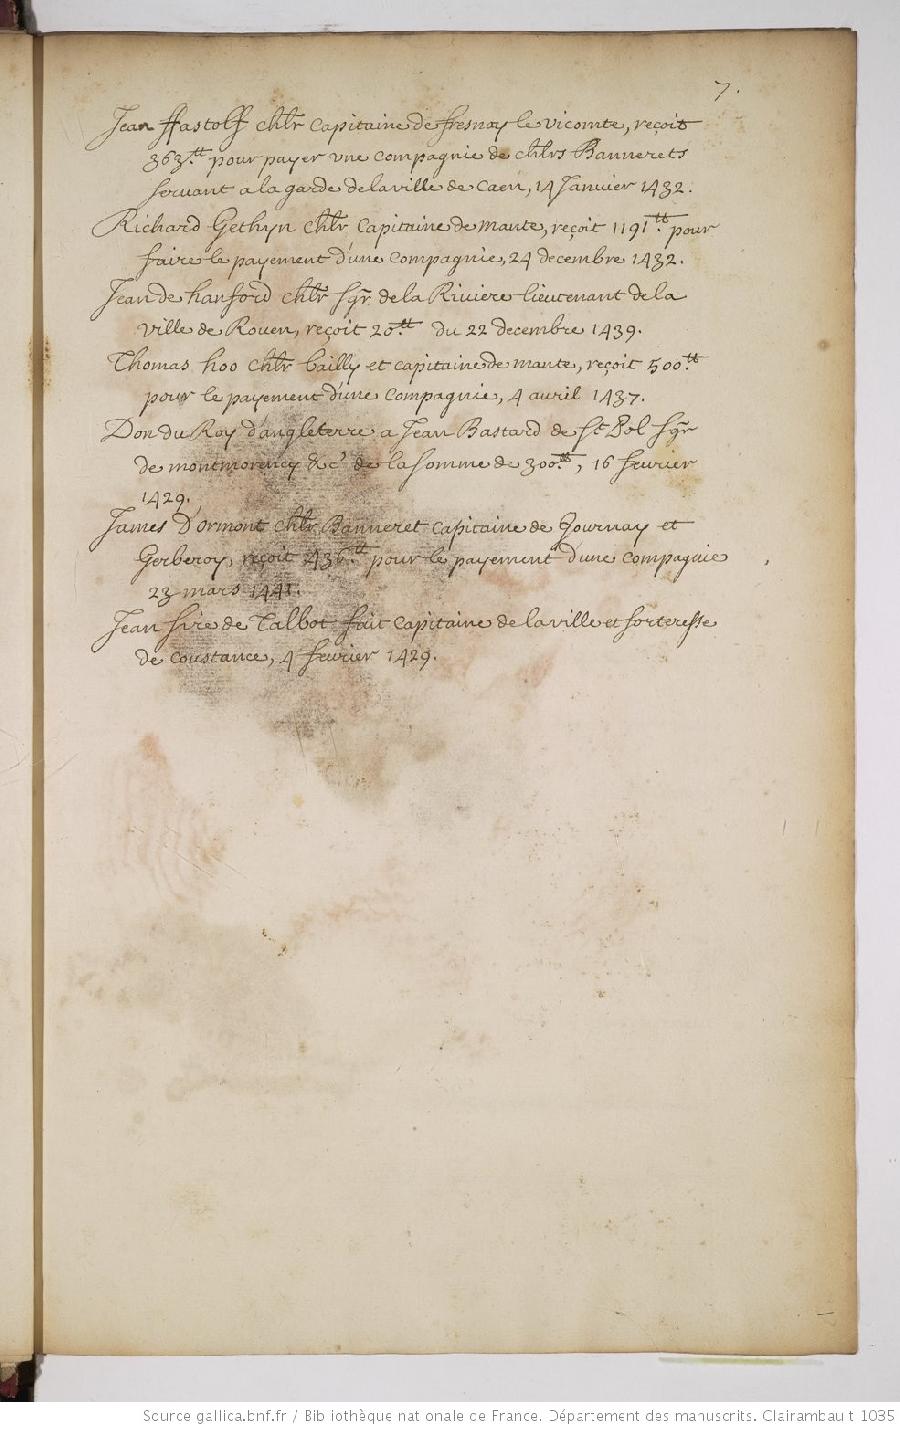 7.
Jean ffastolf chlr Capitaine de fresnay le vicomte, reçoit
363.tt pour payer vne compagnie de chlrs Bannerets
servant a la garde de la ville de Caen, 14 Janvier 1432.
Richard Gethyn chlr Capitaine de mante, reçoit 1191.tt pour
faire le payement d'une compagnie, 24 decembre 1432.
Jean de hanford chlr sgr. de la Riviere lieutenant de la
ville de Rouen, reçoit 20.tt du 22 decembre 1439.
Thomas hoo chlr bailly et capitaine de mante, reçoit 500.tt
pour le payement d'une compagnie, 4 avril 1437.
Don du Roy d'angleterre a Jean Bastard de St Pol sgr
de montmorency &c.a de la somme de 300.tt, 16 fevrier
1429.
James D'ormont chlr Banneret capitaine de Gournay et
Gerberoy, reçoit 436.tt pour le payement d'une compagnie
23 mars 1441.
Jean sire de Talbot fait capitaine de la ville et forteresse
de coustance, 4 fevrier 1429.
Source gallica.bnf.fr / Bibliothèque nationale de France. Département des manuscrits. Clairambault 1035